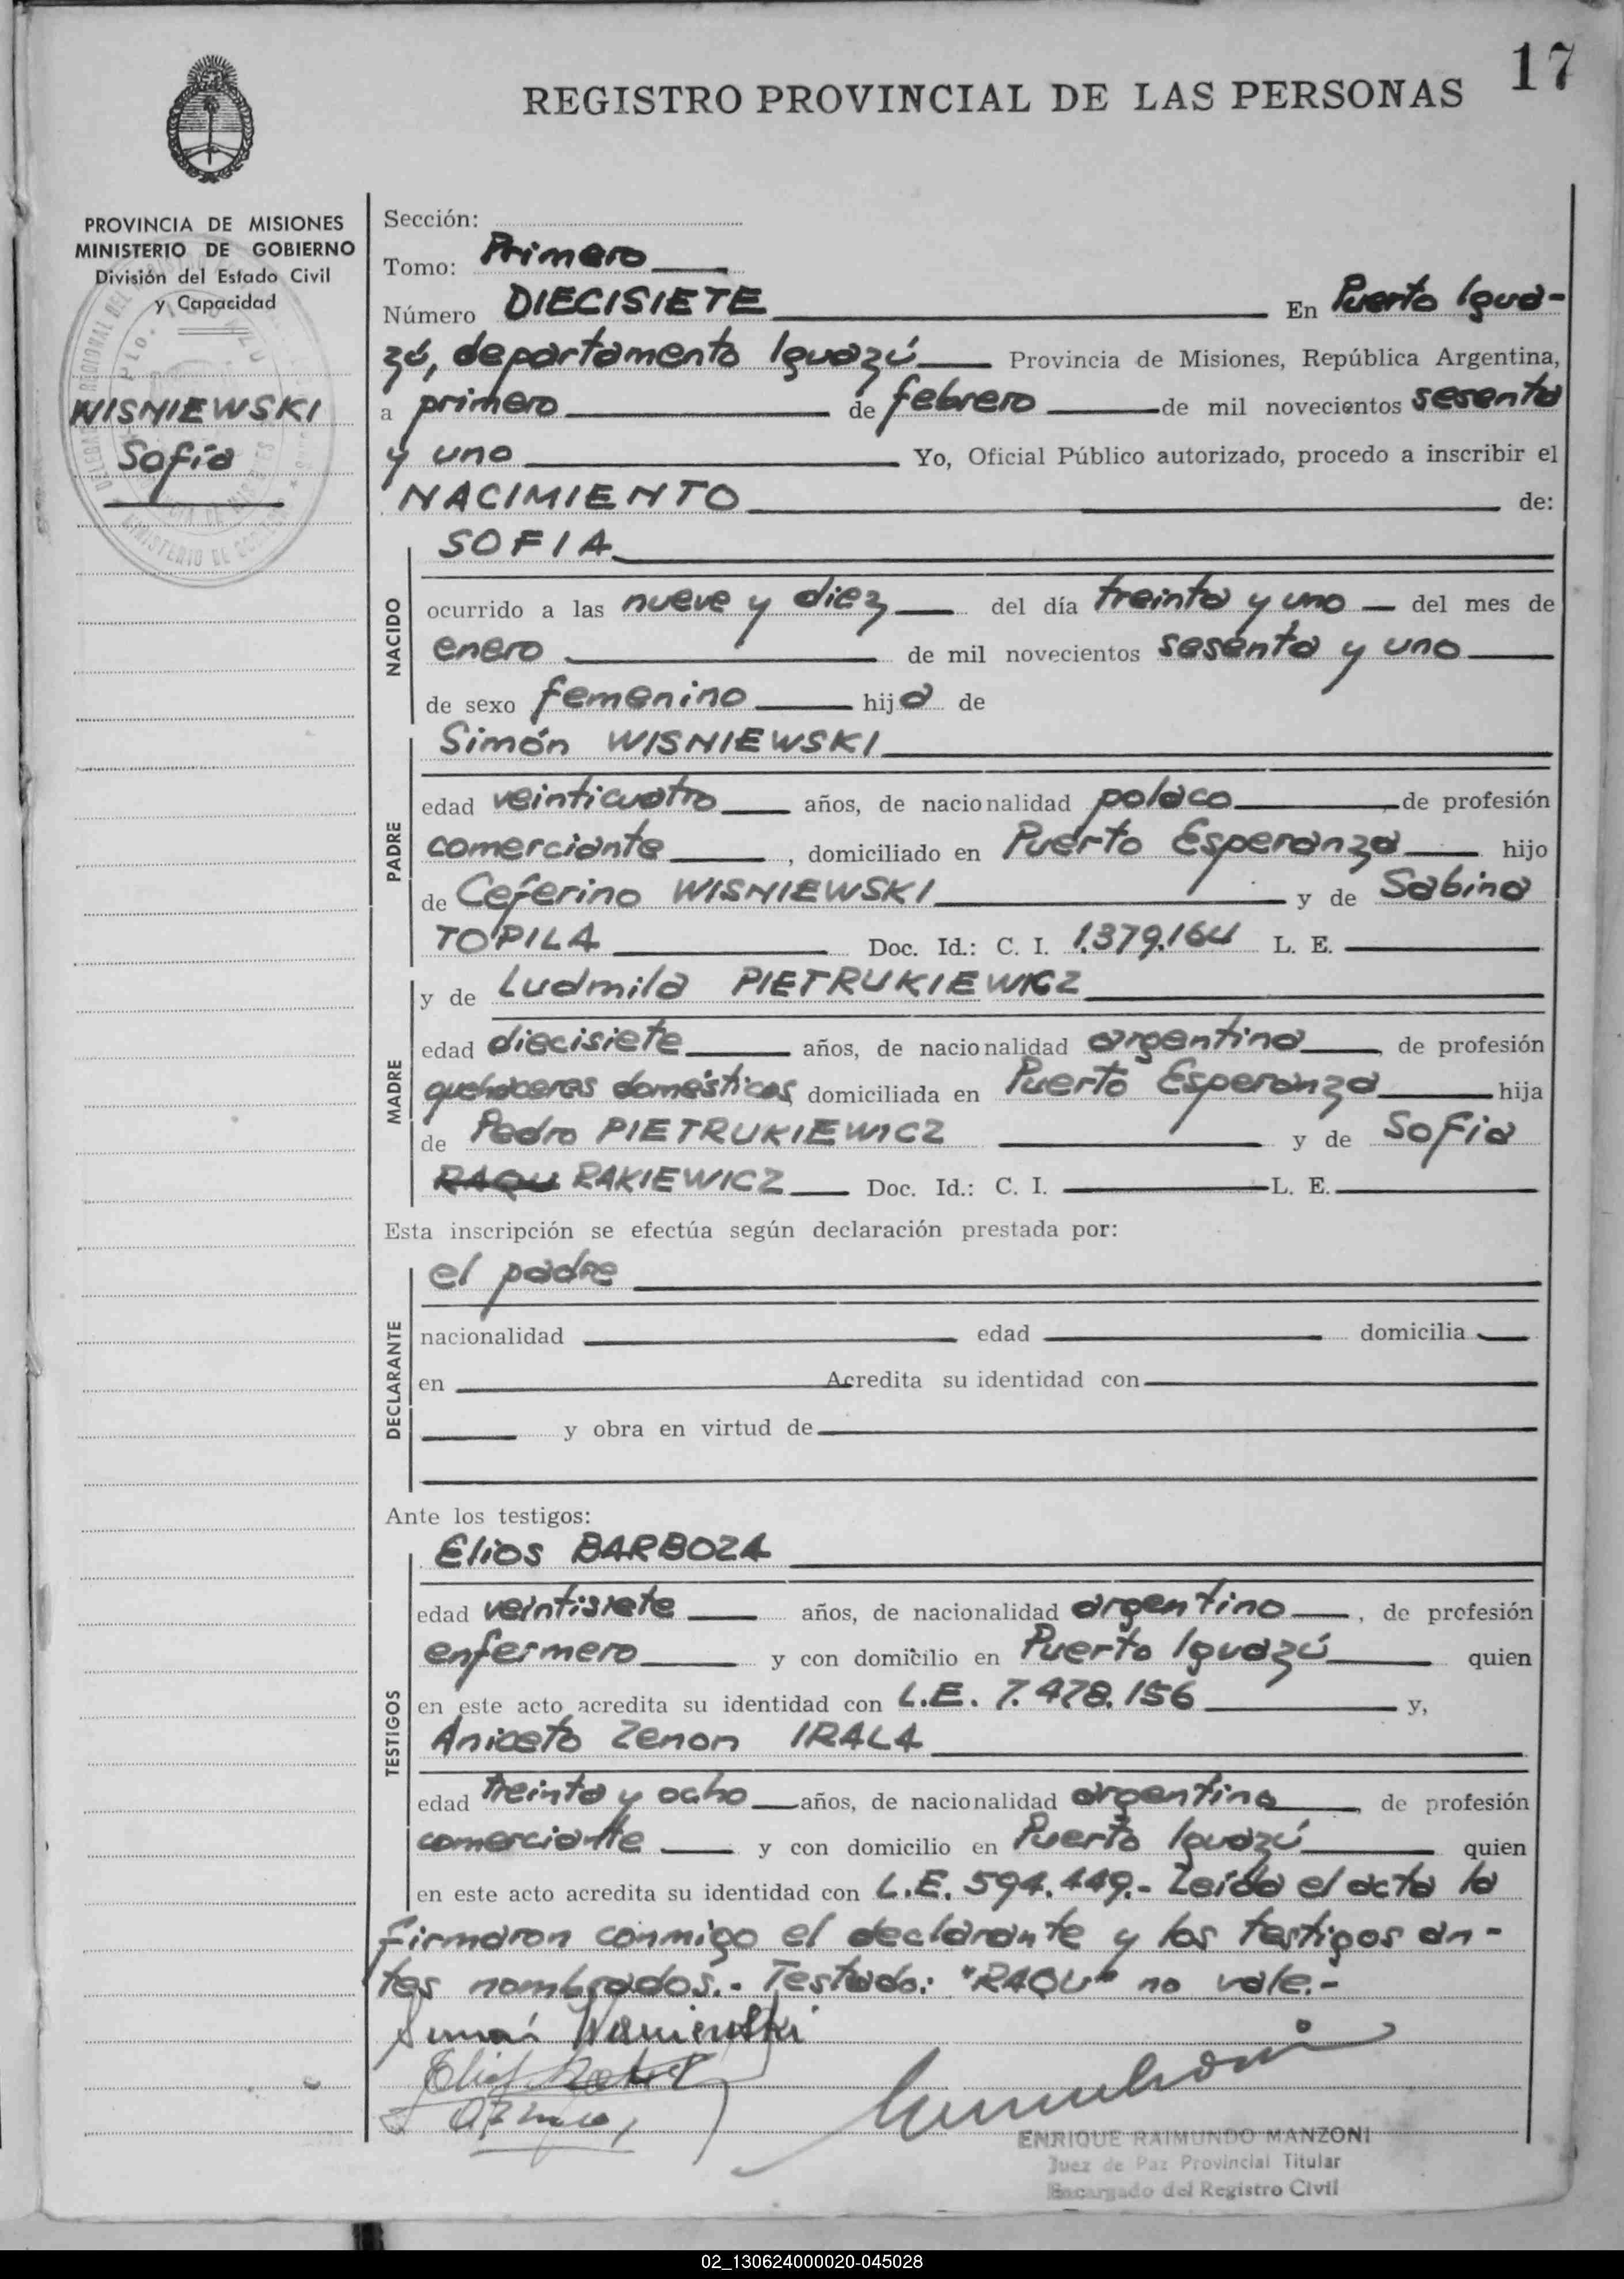 17
REGISTRO PROVINCIAL DE LAS PERSONAS
PROVINCIA DE MISIONES
MINISTERIO DE GOBIERNO
División del Estado Civil
y Capacidad
WISNIEWSKI
Sofía
Sección:
Tomo: Primero
Número DIECISIETE En Puerto Igua-
zú, departamento Iguazú Provincia de Misiones, República Argentina,
a primero de febrero de mil novecientos sesenta
y uno Yo, Oficial Público autorizado, procedo a inscribir el
NACIMIENTO de:
NACIDO
SOFIA
ocurrido a las nueve y diez del día treinta y uno del mes de
enero de mil novecientos sesenta y uno
de sexo femenino hija de
PADRE
Simón WISNIEWSKI
edad veinticuatro años, de nacionalidad polaco de profesión
comerciante, domiciliado en Puerto Esperanza hijo
de Ceferino WISNIEWSKI y de Sabina
TOPILA Doc. Id.: C. I. 1.379.164 L. E.
MADRE
y de Ludmila PIETRUKIEWICZ
edad diecisiete años, de nacionalidad argentina, de profesión
quehaceres domésticos, domiciliada en Puerto Esperanza hija
de Pedro PIETRUKIEWICZ y de Sofia
RAQU RAKIEWICZ Doc. Id.: C. I. L. E.
Esta inscripción se efectúa según declaración prestada por:
DECLARANTE
el padre
nacionalidad edad domicilia
en Acredita su identidad con
y obra en virtud de
Ante los testigos:
TESTIGOS
Elios BARBOZA
edad veintisiete años, de nacionalidad argentino, de profesión
enfermero y con domicilio en Puerto Iguazú quien
en este acto acredita su identidad con L.E. 7.478.156 y,
Aniceto Zenon IRALA
edad treinta y ocho años, de nacionalidad argentina, de profesión
comerciante y con domicilio en Puerto Iguazú quien
en este acto acredita su identidad con L.E. 594.449.- Leída el acta la
firmaron conmigo el declarante y los testigos an-
tes nombrados.- Testado: "RAQU" no vale.-
ENRIQUE RAIMUNDO MANZONI
Juez de Paz Provincial Titular
Encargado del Registro Civil
02_130624000020-045028